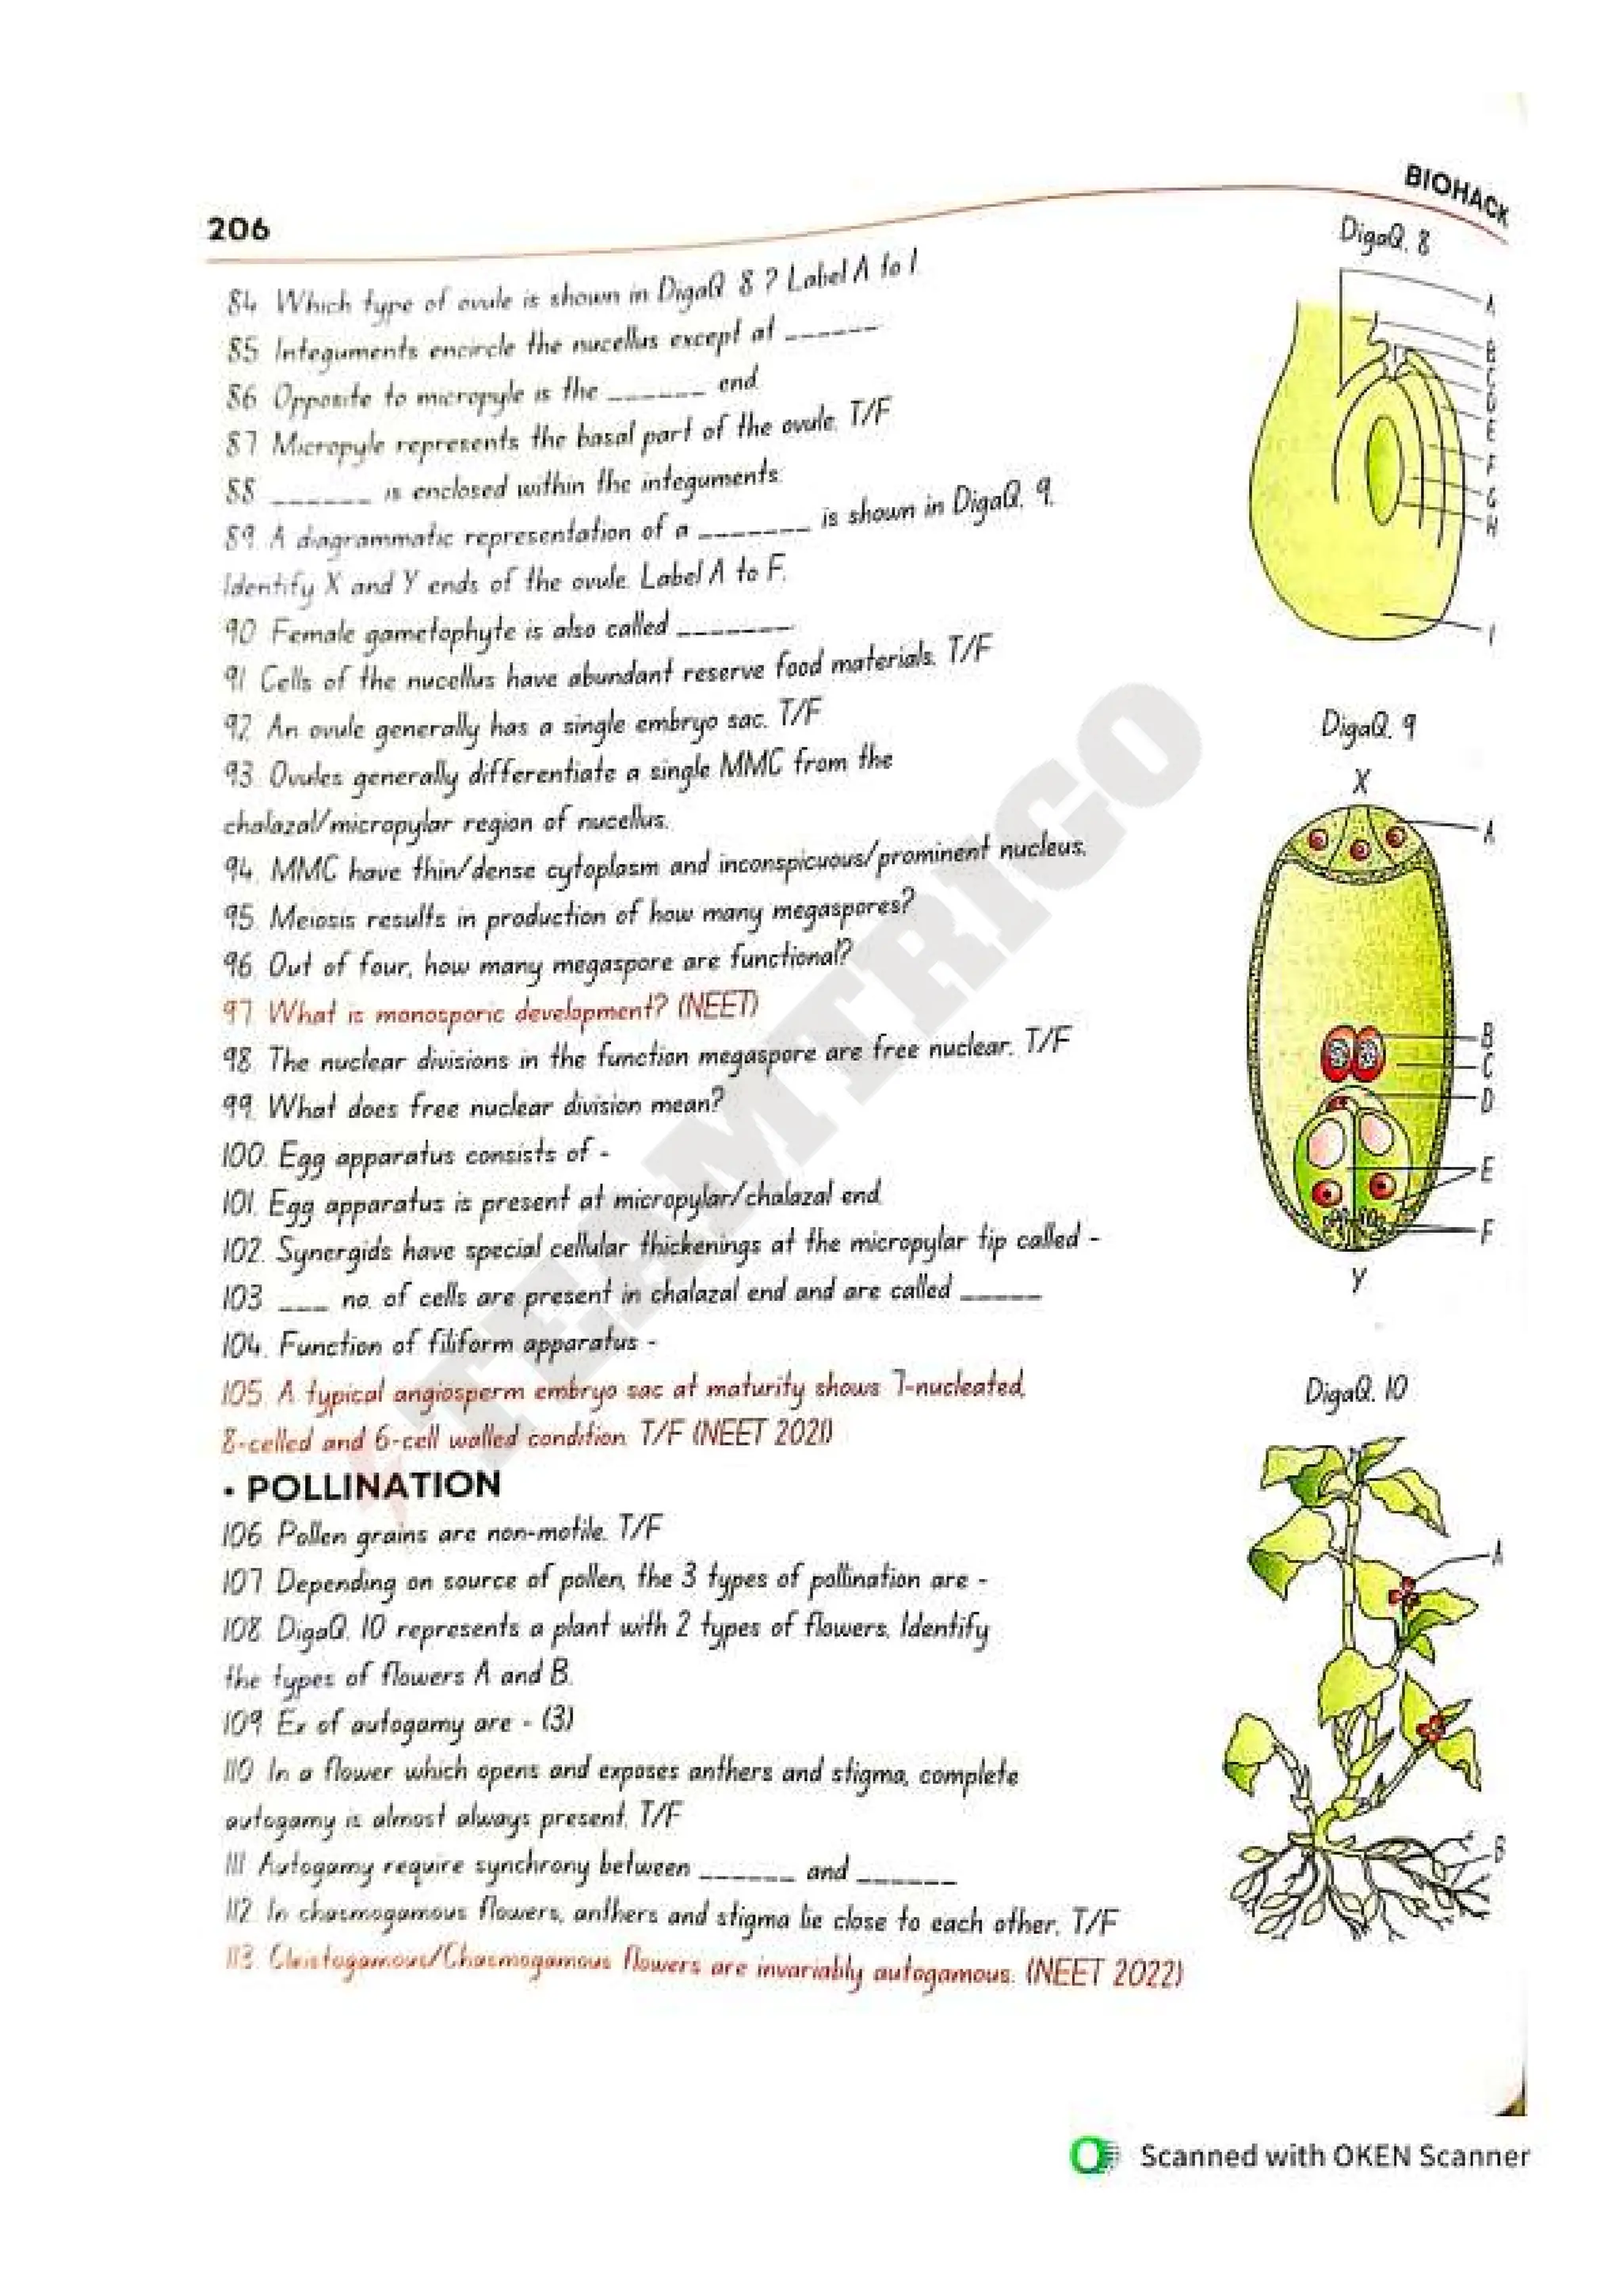 BIOHACK
206
84. Which type of ovule is shown in DigaQ. 8 ? Label A to I.
85. Integuments encircle the nucellus except at ______
86. Opposite to micropyle is the ______ end.
87. Micropyle represents the basal part of the ovule. T/F
88. ______ is enclosed within the integuments.
89. A diagrammatic representation of a _______ is shown in DigaQ. 9.
Identify X and Y ends of the ovule. Label A to F.
90. Female gametophyte is also called _______
91. Cells of the nucellus have abundant reserve food materials. T/F
92. An ovule generally has a single embryo sac. T/F
93. Ovules generally differentiate a single MMC from the
chalazal/micropylar region of nucellus.
94. MMC have thin/dense cytoplasm and inconspicuous/prominent nucleus.
95. Meiosis results in production of how many megaspores?
96. Out of four, how many megaspore are functional?
97. What is monosporic development? (NEET)
98. The nuclear divisions in the function megaspore are free nuclear. T/F
99. What does free nuclear division mean?
100. Egg apparatus consists of -
101. Egg apparatus is present at micropylar/chalazal end.
102. Synergids have special cellular thickenings at the micropylar tip called -
103. ___ no. of cells are present in chalazal end and are called _____
104. Function of filiform apparatus -
105. A typical angiosperm embryo sac at maturity shows 7-nucleated,
8-celled and 6-cell walled condition. T/F (NEET 2021)
• POLLINATION
106. Pollen grains are non-motile. T/F
107. Depending on source of pollen, the 3 types of pollination are -
108. DigaQ. 10 represents a plant with 2 types of flowers. Identify
the types of flowers A and B.
109. Ex of autogamy are - (3)
110. In a flower which opens and exposes anthers and stigma, complete
autogamy is almost always present. T/F
111. Autogamy require synchrony between ______ and ______
112. In chasmogamous flowers, anthers and stigma lie close to each other. T/F
113. Cleistogamous/Chasmogamous flowers are invariably autogamous. (NEET 2022)
DigaQ. 8
A
B
C
D
E
F
G
H
I
DigaQ. 9
X
A
B
C
D
E
F
Y
DigaQ. 10
A
B
TEAMTRIGO
Scanned with OKEN Scanner